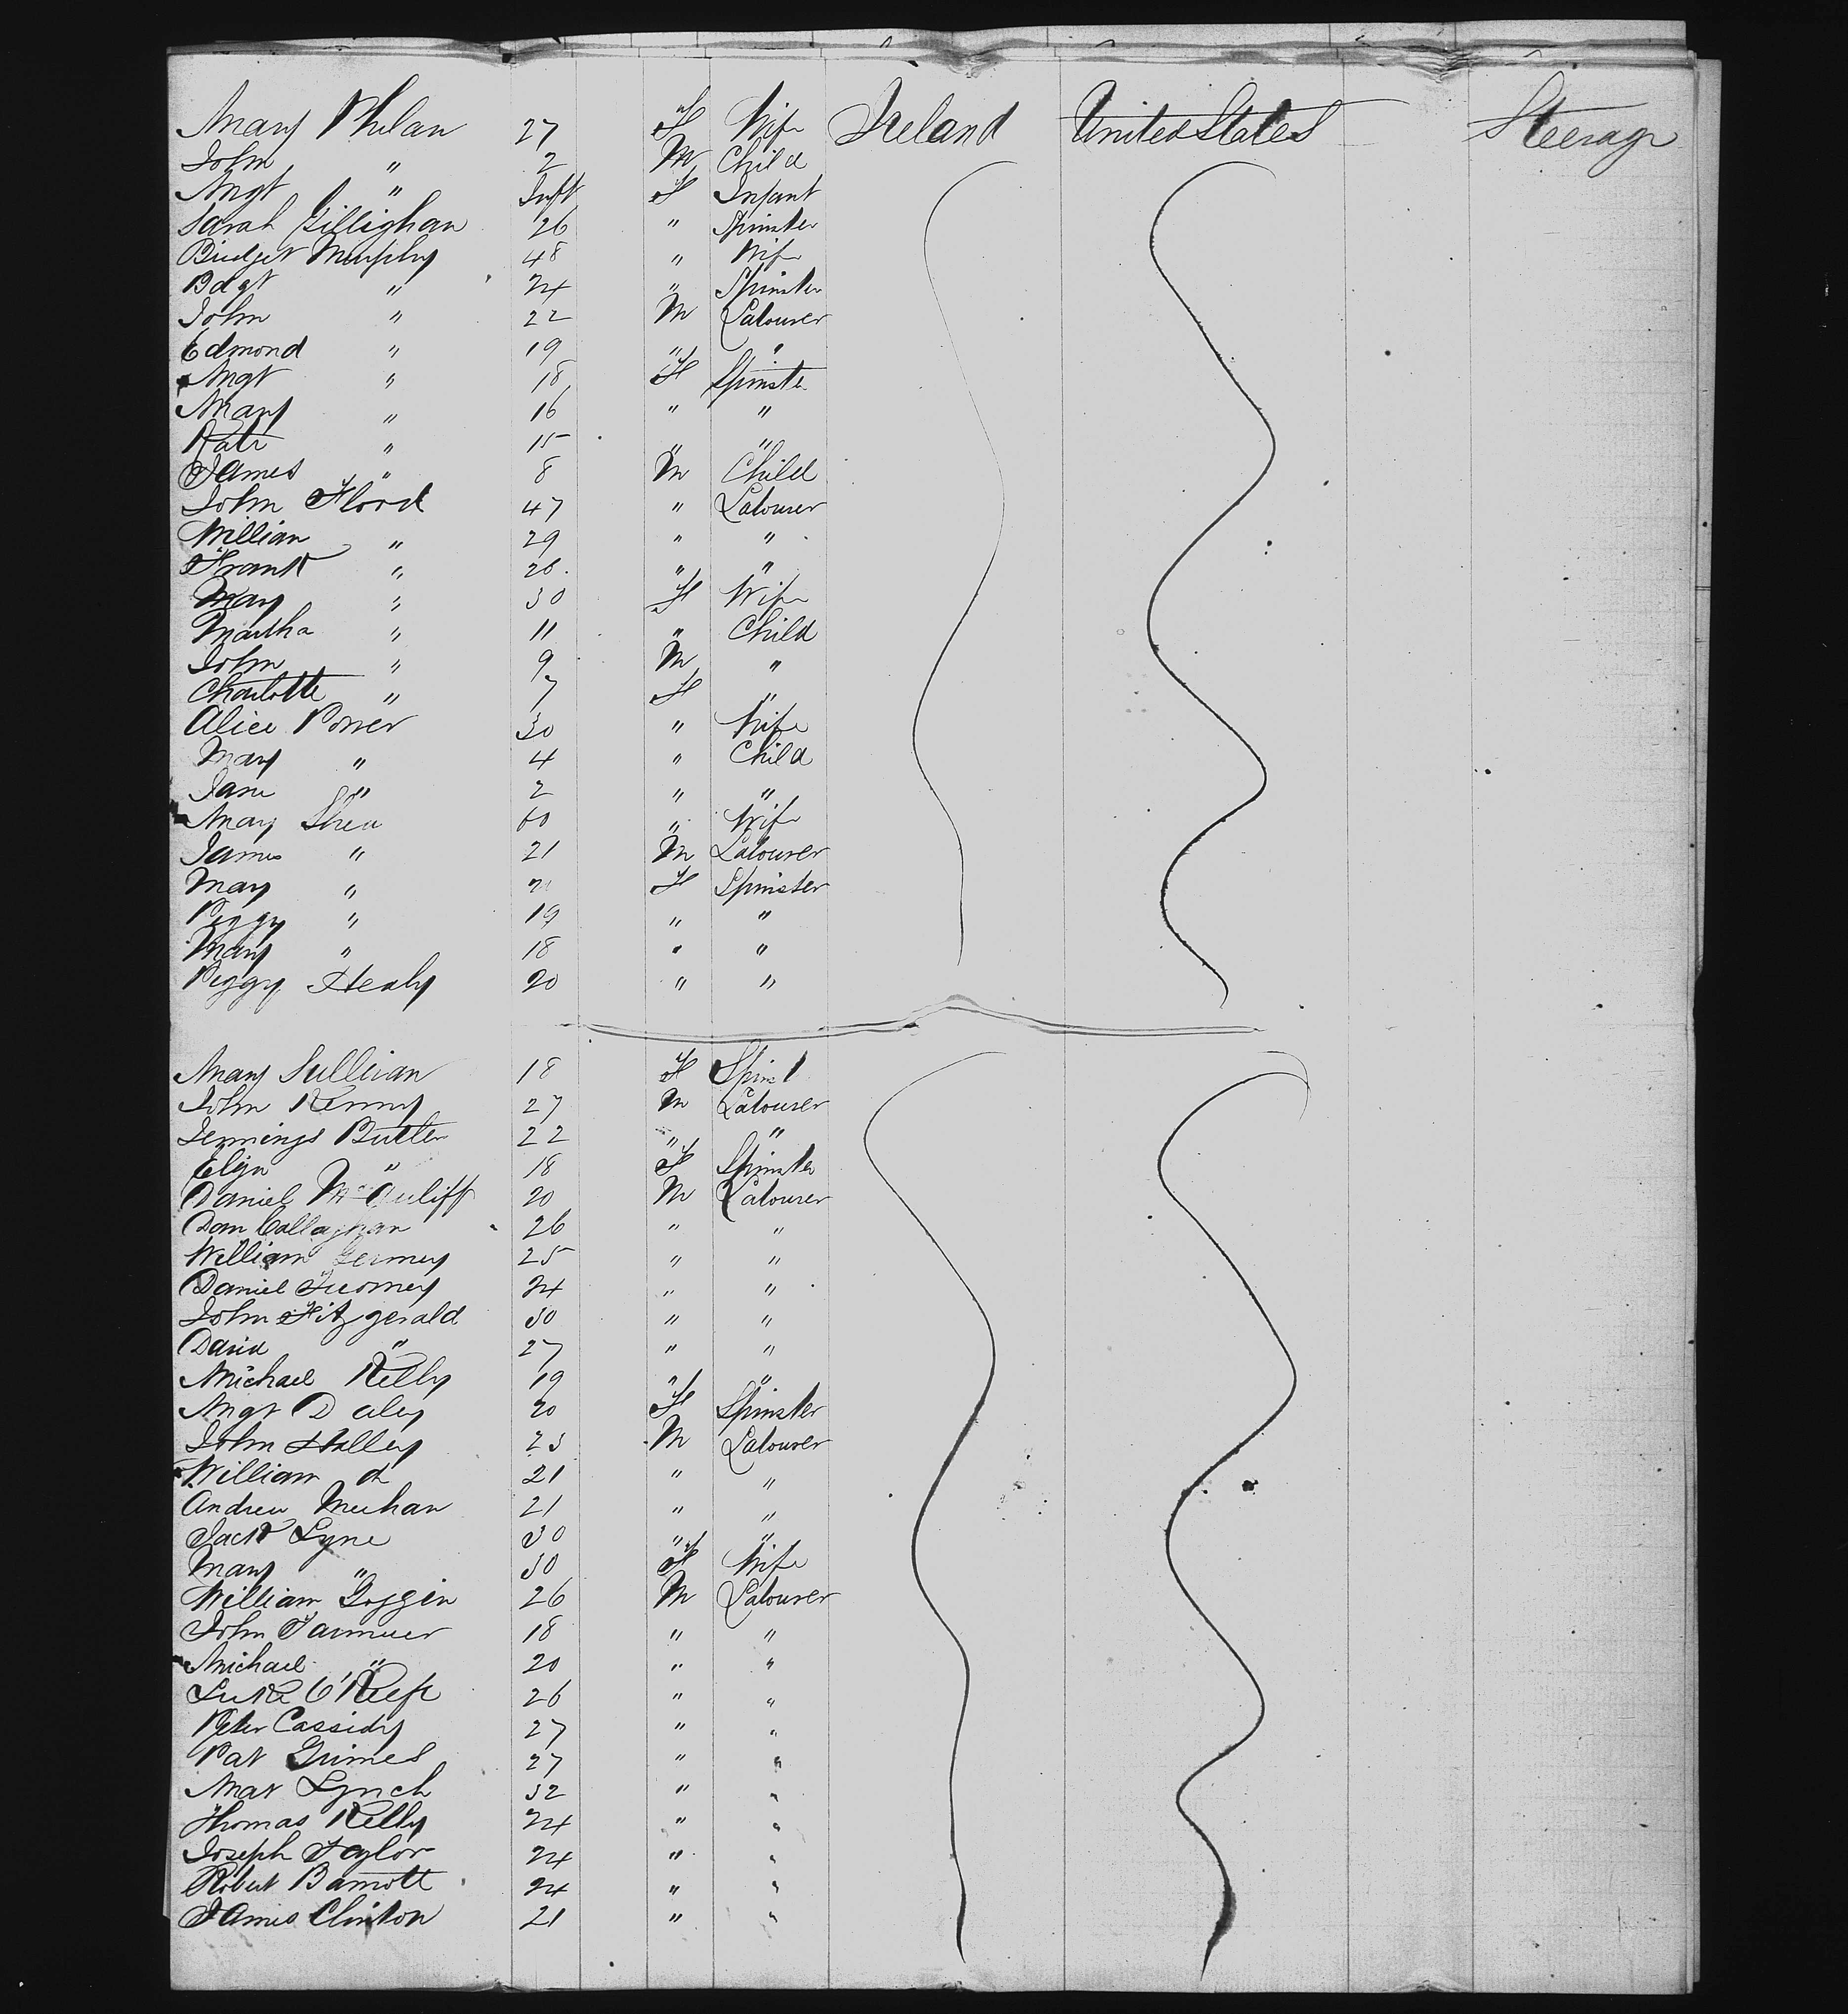 Mary Phelan 27 F Wife Ireland United States Steerage
John " 2 M Child
Mgt " Inft F Infant
Sarah Gillighan 26 " Spinster
Bridget Murphy 48 " Wife
Bdgt " 24 " Spinster
John " 22 M Labourer
Edmond " 19 " "
Mgt " 18 F Spinste
Mary " 16 " "
Kate " 15 " "
James " 8 M Child
John Flood 47 " Labourer
William " 29 " "
Frank " 26 " "
Mary " 30 F Wife
Martha " 11 " Child
John " 9 M "
Charlotte " 7 F "
Alice Power 30 " Wife
Mary " 4 " Child
Jane " 2 " "
Mary Shea 60 " Wife
James " 21 M Labourer
Mary " F Spinster
Peggy " 19 " "
Mary " 18 " "
Peggy Healy 20 " "
Mary Sullivan 18 F Spinst
John Kenny 27 M Labourer
Jennings Butler 22 " "
Eliza " 18 F Spinster
Daniel McAuliff 20 M Labourer
Dan Callaghan 26 " "
William 25 " "
Daniel Twomey 24 " "
John Fitzgerald 30 " "
David " 27 " "
Michael Kelly 19 " "
Mgt Daley 20 F Spinster
John Halley 23 M Labourer
William do 21 " "
Andrew Meehan 21 " "
Jack Lyne 30 " "
Mary " 30 F Wife
William Goggin 26 M Labourer
John 18 " "
Michael " 20 " "
Luke O'Keefe 26 " "
Peter Cassidy 27 " "
Pat Grimes 27 " "
Mat Lynch 32 " "
Thomas Kelly 24 " "
Joseph Taylor 24 " "
Robert Barnott 24 " "
James Clinton 21 " "